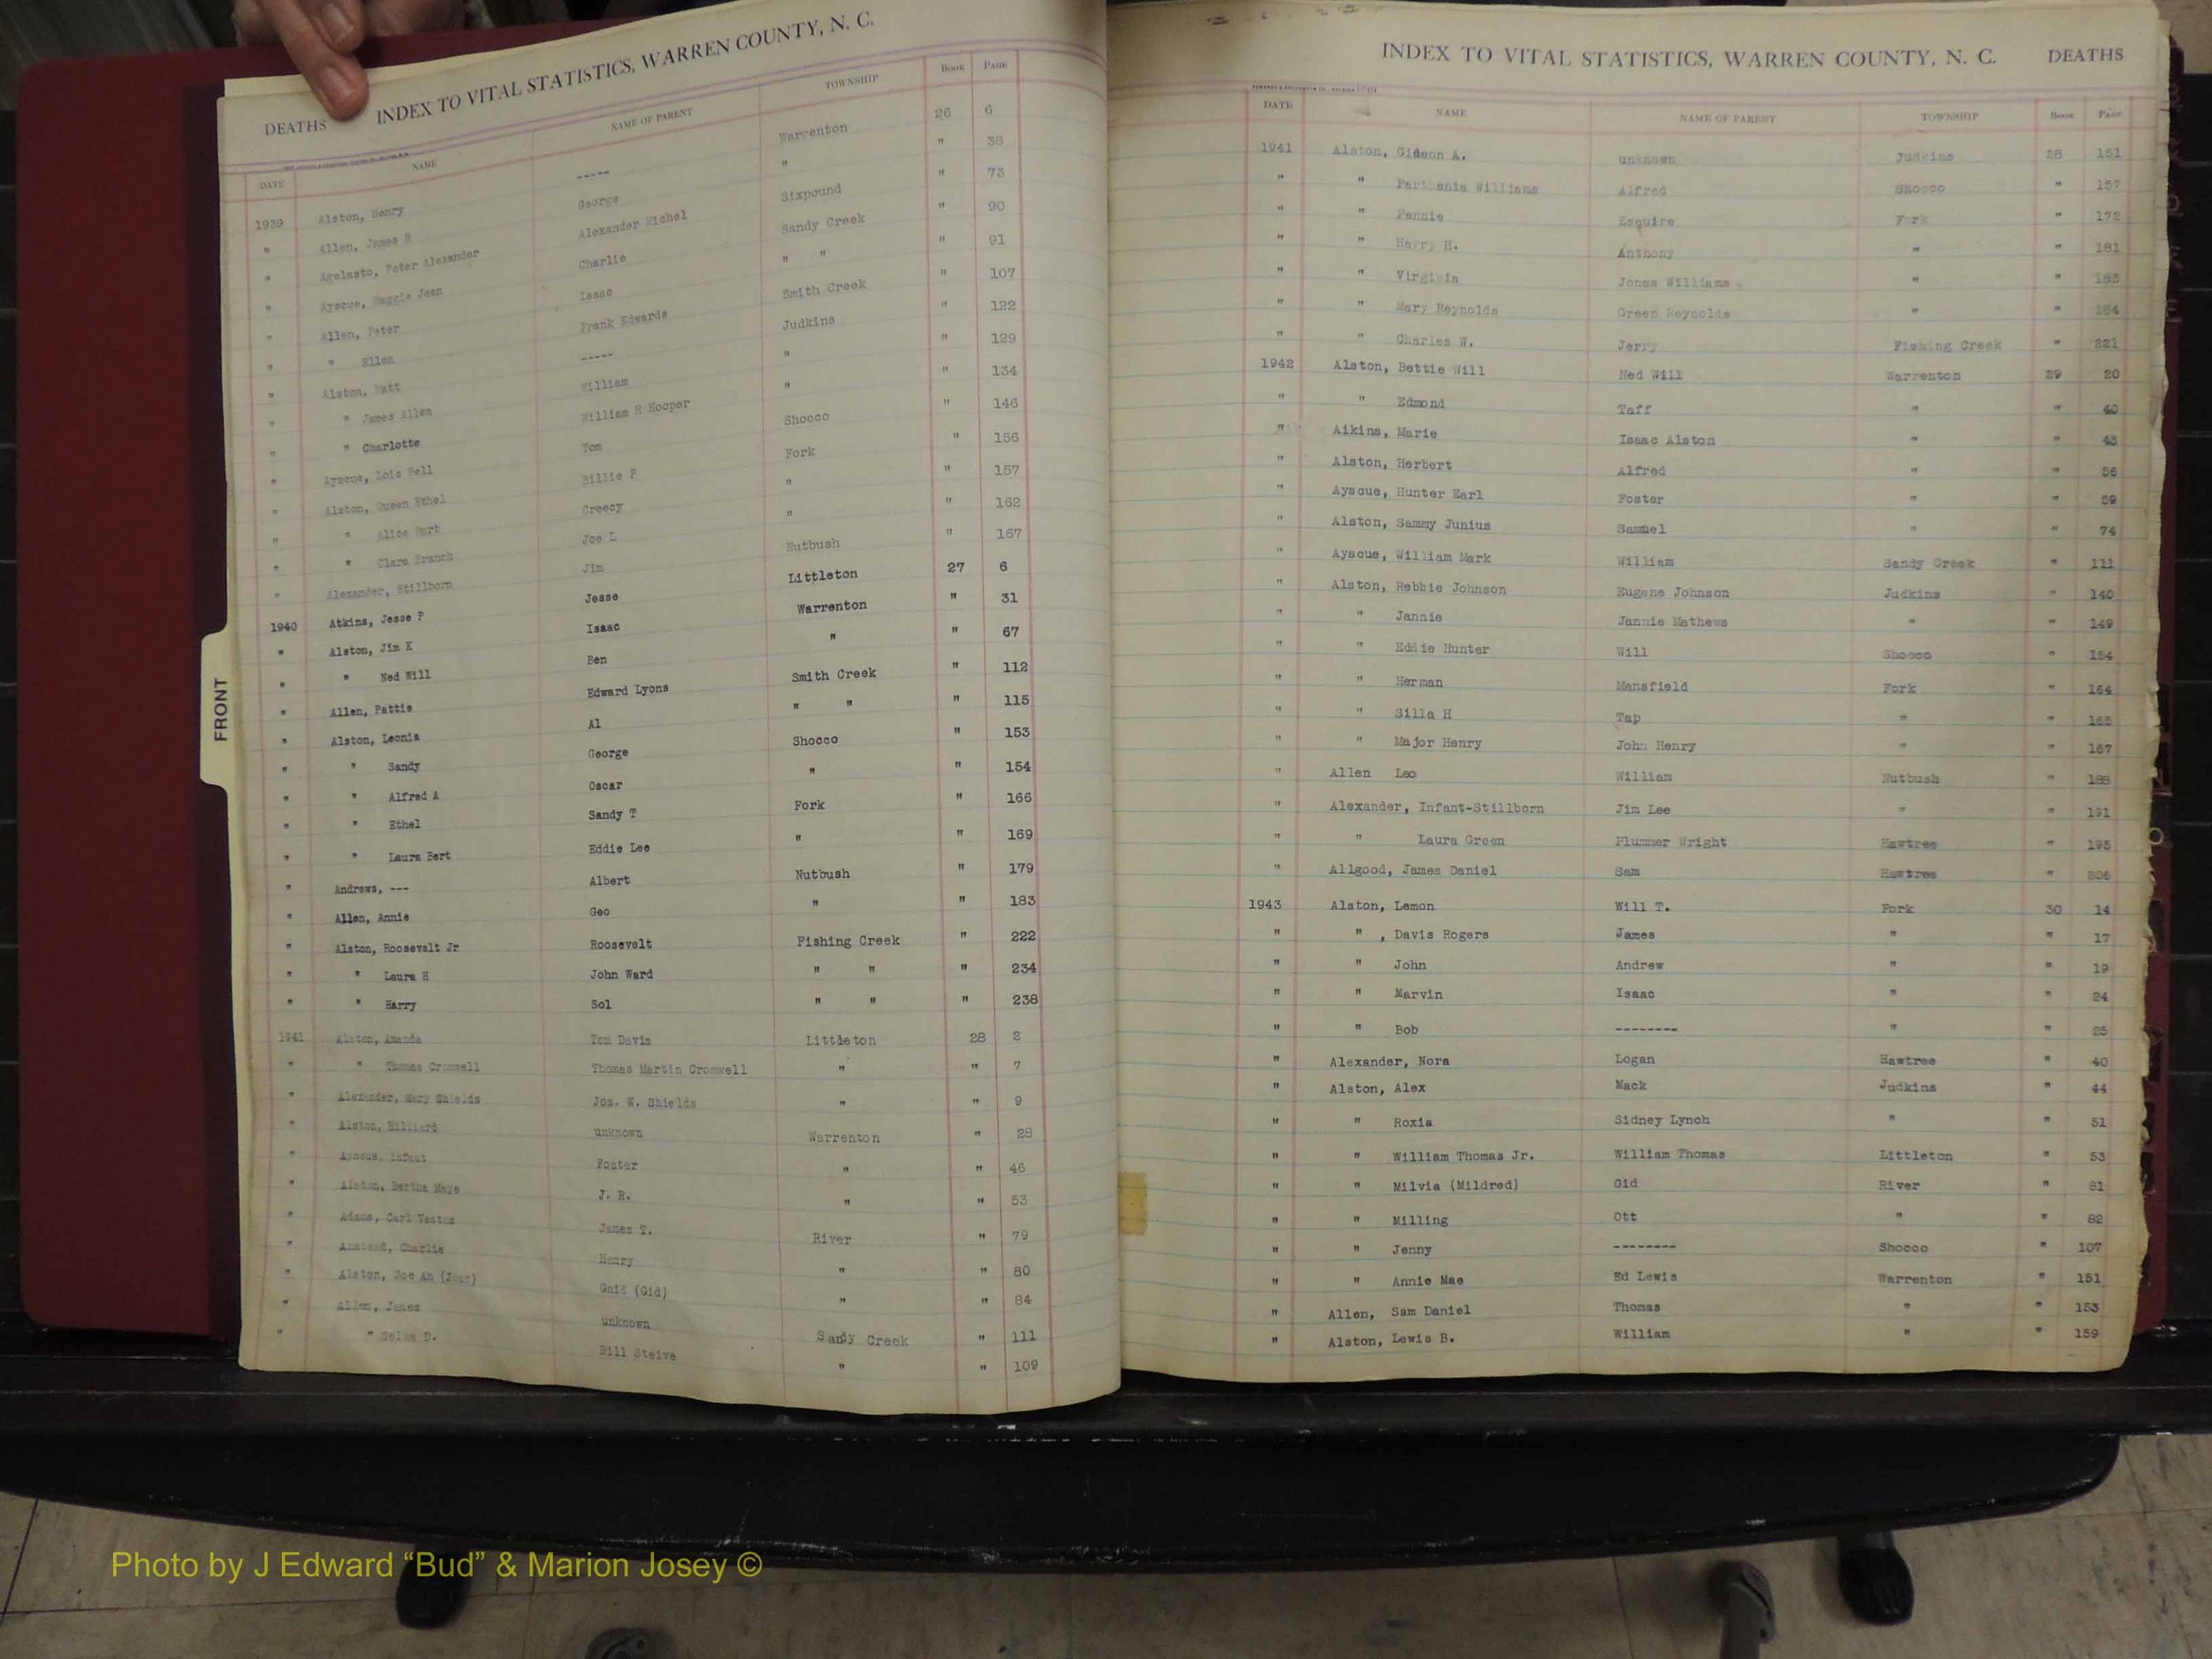 DEATHS INDEX TO VITAL STATISTICS, WARREN COUNTY, N. C.
DATE NAME NAME OF PARENT TOWNSHIP Book Page
1939 Alston, Henry ----- Warrenton 26 6
" Allen, James R George " " 38
" Agelasto, Peter Alexander Alexander Michel Sixpound " 73
" Ayscue, Maggie Jean Charlie Sandy Creek " 90
" Allen, Peter Isaac " " " 91
" " Ellen Frank Edwards Smith Creek " 107
" Alston, Matt ----- Judkins " 122
" " James Allen William " " 129
" " Charlotte William H Hooper " " 134
" Ayscue, Lois Bell Tom Shocco " 146
" Alston, Queen Ethel Billie P Fork " 156
" " Alice Burt Creecy " " 157
" " Clara Branch Joe L " " 162
" Alexander, Stillborn Jim Nutbush " 167
1940 Atkins, Jesse P Jesse Littleton 27 6
" Alston, Jim K Isaac Warrenton " 31
" " Ned Will Ben " " 67
" Allen, Pattie Edward Lyons Smith Creek " 112
" Alston, Leonia Al " " " 115
" " Sandy George Shocco " 153
" " Alfred A Oscar " " 154
" " Ethel Sandy T Fork " 166
" " Laura Bert Eddie Lee " " 169
" Andrews, --- Albert Nutbush " 179
" Allen, Annie Geo " " 183
" Alston, Roosevelt Jr Roosevelt Fishing Creek " 222
" " Laura H John Ward " " " 234
" " Harry Sol " " " 238
1941 Alston, Amanda Tom Davis Littleton 28 2
" " Thomas Cromwell Thomas Martin Cromwell " " 7
" Alexander, Mary Shields Jos. W. Shields " " 9
" Alston, Hilliard unknown Warrenton " 28
" Ayscue, Infant Foster " " 46
" Alston, Bertha Maye J. R. " " 53
" Adams, Carl Vastus James T. River " 79
" Charlie Henry " " 80
" Alston, Joe An (Joan) Gaid (Gid) " " 84
" Allen, James unknown Sandy Creek " 111
" " Selma D. Bill Steive " " 109
INDEX TO VITAL STATISTICS, WARREN COUNTY, N. C. DEATHS
DATE NAME NAME OF PARENT TOWNSHIP Book Page
1941 Alston, Gideon A. unknown Judkins 28 151
" " Parthenia Williams Alfred Shocco " 157
" " Pennie Esquire Fork " 172
" " Harry H. Anthony " " 181
" " Virginia Jonas Williams " " 183
" " Mary Reynolds Green Reynolds " " 184
" " Charles W. Jerry Fishing Creek " 221
1942 Alston, Bettie Will Ned Will Warrenton 29 20
" " Edmond Taff " " 40
" Aikins, Marie Isaac Alston " " 43
" Alston, Herbert Alfred " " 56
" Ayscue, Hunter Earl Foster " " 59
" Alston, Sammy Junius Samuel " " 74
" Ayscue, William Mark William Sandy Creek " 111
" Alston, Rebbie Johnson Eugene Johnson Judkins " 140
" " Jannie Jannie Mathews " " 149
" " Eddie Hunter Will Shocco " 154
" " Herman Mansfield Fork " 164
" " Silla H Tap " " 165
" " Major Henry John Henry " " 167
" Allen Leo William Nutbush " 188
" Alexander, Infant-Stillborn Jim Lee " " 191
" " Laura Green Plummer Wright Hawtree " 195
" Allgood, James Daniel Sam Hawtree " 206
1943 Alston, Lemon Will T. Fork 30 14
" " , Davis Rogers James " " 17
" " John Andrew " " 19
" " Marvin Isaac " " 24
" " Bob -------- " " 25
" Alexander, Nora Logan Hawtree " 40
" Alston, Alex Mack Judkins " 44
" " Roxia Sidney Lynch " " 51
" " William Thomas Jr. William Thomas Littleton " 53
" " Milvia (Mildred) Gid River " 81
" " Milling Ott " " 82
" " Jenny -------- Shocco " 107
" " Annie Mae Ed Lewis Warrenton " 151
" Allen, Sam Daniel Thomas " " 153
" Alston, Lewis B. William " " 159
FRONT
Photo by J Edward “Bud” & Marion Josey ©